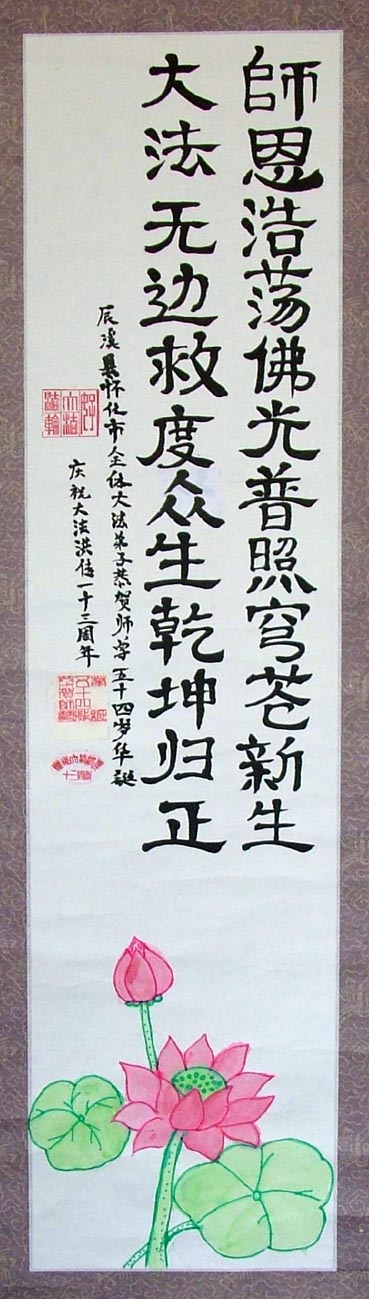 師恩浩荡佛光普照穹苍新生
大法无边救度众生乾坤归正
辰溪县怀化市全体大法弟子恭贺师尊五十四岁华誕
庆祝大法洪传一十三周年
法輪大法好